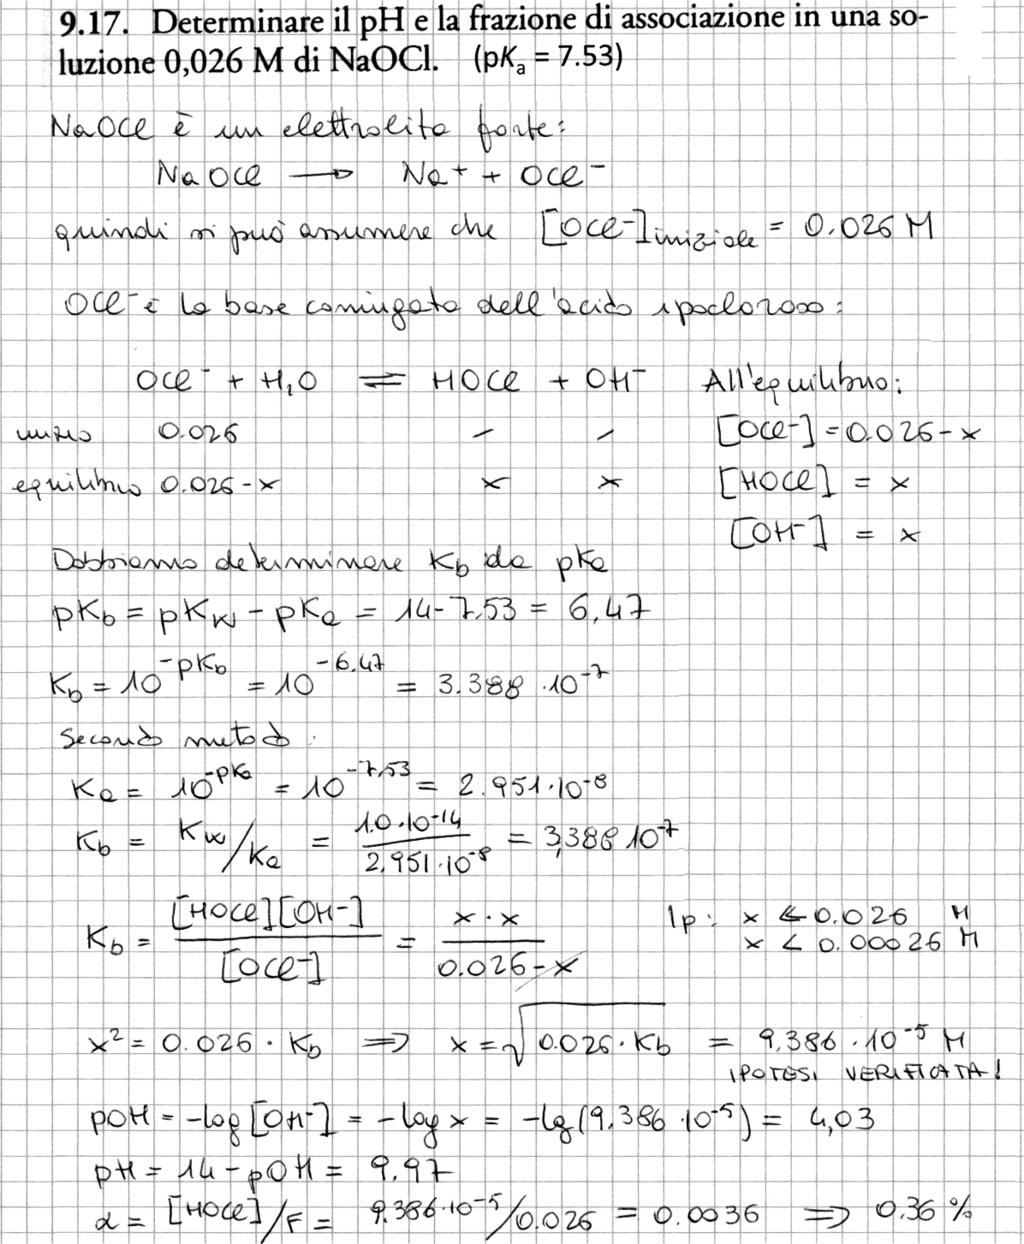 9.17. Determinare il pH e la frazione di associazione in una so-
luzione 0,026 M di NaOCl. (pKa = 7.53)
NaOCl è un elettrolita forte:
NaOCl → Na+ + OCl-
quindi si può assumere che [OCl-]iniziale = 0.026 M
OCl- è la base coniugata dell'acido ipocloroso:
OCl- + H2O ⇌ HOCl + OH- All'equilibrio:
inizio 0.026 - - [OCl-] = 0.026-x
equilibrio 0.026-x x x [HOCl] = x
[OH-] = x
Dobbiamo determinare Kb da pKa
pKb = pKw - pKa = 14-7,53 = 6,47
Kb = 10^-pKb = 10^-6.47 = 3.388 · 10^-7
Secondo metodo:
Ka = 10^-pKa = 10^-7,53 = 2.951·10^-8
Kb = Kw/Ka = 1.0·10^-14 / 2,951·10^-8 = 3,388 10^-7
Kb = [HOCl][OH-] / [OCl-] = x · x / 0.026-x Ip: x ≪ 0.026 M
x < 0.00026 M
x² = 0.026 · Kb ⇒ x = √0.026·Kb = 9,386 · 10^-5 M
IPOTESI VERIFICATA!
pOH = -log [OH-] = -log x = -lg(9,386·10^-5) = 4,03
pH = 14 - pOH = 9.97
α = [HOCl]/F = 9.386·10^-5/0.026 = 0.0036 ⇒ 0.36 %